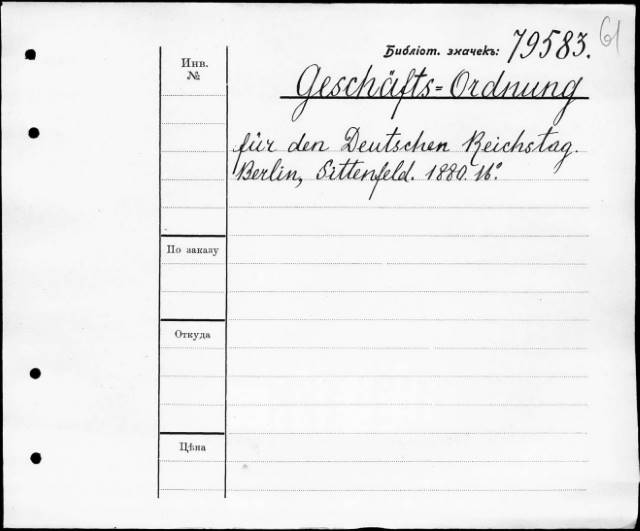 61
Библіот. значекъ: 79583.
Инв.
№
Geschäfts=Ordnung
für den Deutschen Reichstag.
Berlin, Sittenfeld. 1880. 16°.
По заказу
Откуда
Цѣна